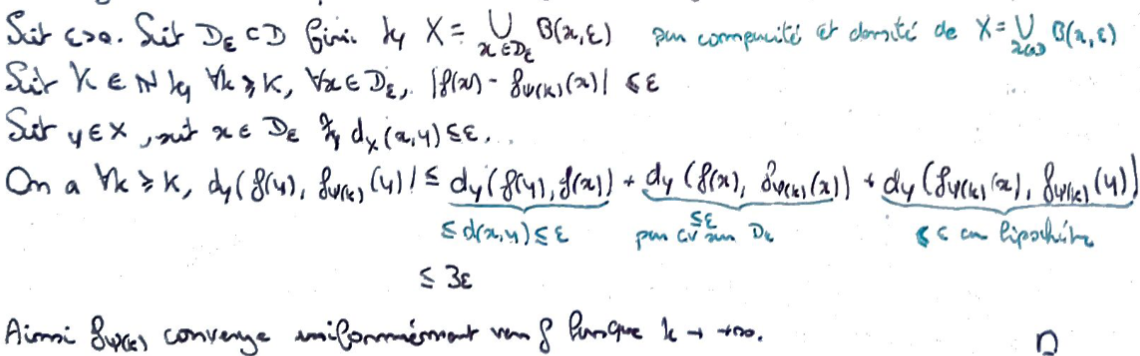 Soit ε>0. Soit D_ε ⊂ D fini tq X = ∪_{x∈D_ε} B(x,ε) par compacité et densité de X = ∪_{x∈D} B(x,ε)
Soit K ∈ ℕ tq ∀k ⩾ K, ∀x ∈ D_ε, |f(x) - f_{ψ(k)}(x)| ≤ ε
Soit y ∈ X, soit x ∈ D_ε tq d_X(x,y) ≤ ε.
On a ∀k ⩾ K, d_Y(f(y), f_{ψ(k)}(y)) ≤ d_Y(f(y), f(x)) + d_Y(f(x), f_{ψ(k)}(x)) + d_Y(f_{ψ(k)}(x), f_{ψ(k)}(y))
≤ d(x,y) ≤ ε ≤ ε par cv sur D_ε ≤ ε car lipschitz
≤ 3ε
Ainsi f_{ψ(k)} converge uniformément vers f lorsque k → +∞. □